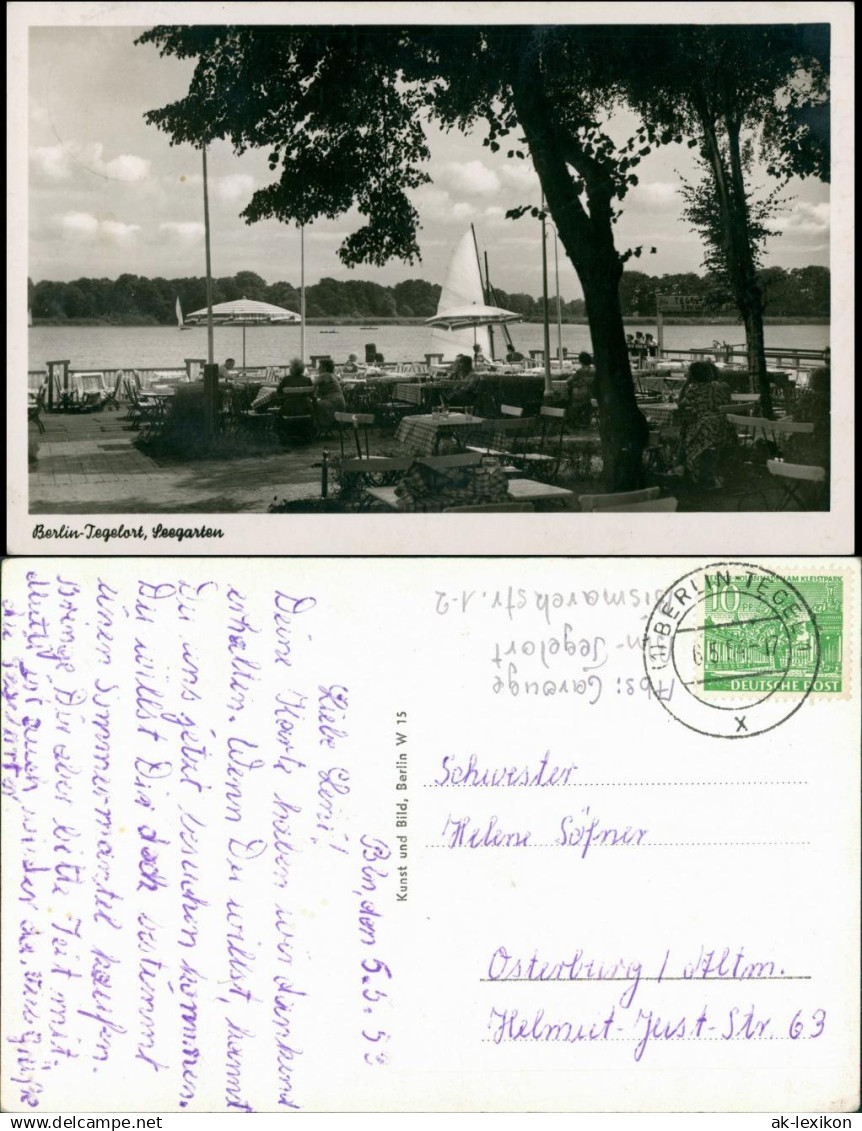 TEGEL
Berlin-Tegelort, Seegarten
Bln, den 5.5.53
Liebe Leni!
Deine Karte haben wir dankend
erhalten. Wenn Du willst, kannst
Du uns jetzt besuchen kommen.
Du willst Dir doch bestimmt
einen Sommermantel kaufen.
Bringe Dir aber bitte Zeit mit.
Mutti ist auch wieder da. Viele Grüße
Kunst und Bild, Berlin W 15
Abs:
Tegelort
Bismarckstr. 1-2
AM KLEISTPARK
10
PF
DEUTSCHE POST
(1) BERLIN-TEGEL 1
x
Schwester
Helene Söfner
Osterburg / Altm.
Helmut-Just-Str. 63
© ak-ansichtskarten.de
ak-lexikon